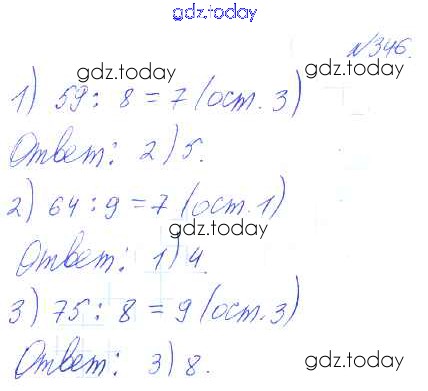 gdz.today
№346.
gdz.today gdz.today
1) 59 : 8 = 7 (ост. 3)
Ответ: 2) 5.
2) 64 : 9 = 7 (ост. 1)
gdz.today
Ответ: 1) 4.
3) 75 : 8 = 9 (ост. 3)
Ответ: 3) 8.
gdz.today gdz.today